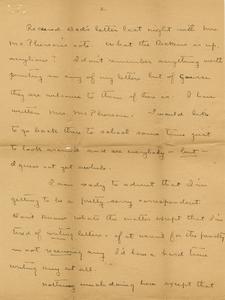 2.
Received Dad's letter last night with Mrs.
Mc Pherson's note. What the Dickens is up,
anyhow? I don't remember anything worth
printing in any of my letters but of course
they are welcome to them if has it. I have
written Mrs. Mc Pherson. I would like
to go back there to school some time just
to look around and see everybody – but –
I guess not yet awhile.
I am ready to admit that I'm
getting to be a pretty sorry correspondent
Don't know what's the matter except that I'm
tired of writing letters – if it wasn't for the penalty
in not receiving any I'd have a hard time
writing any at all.
Nothing new doing here except that